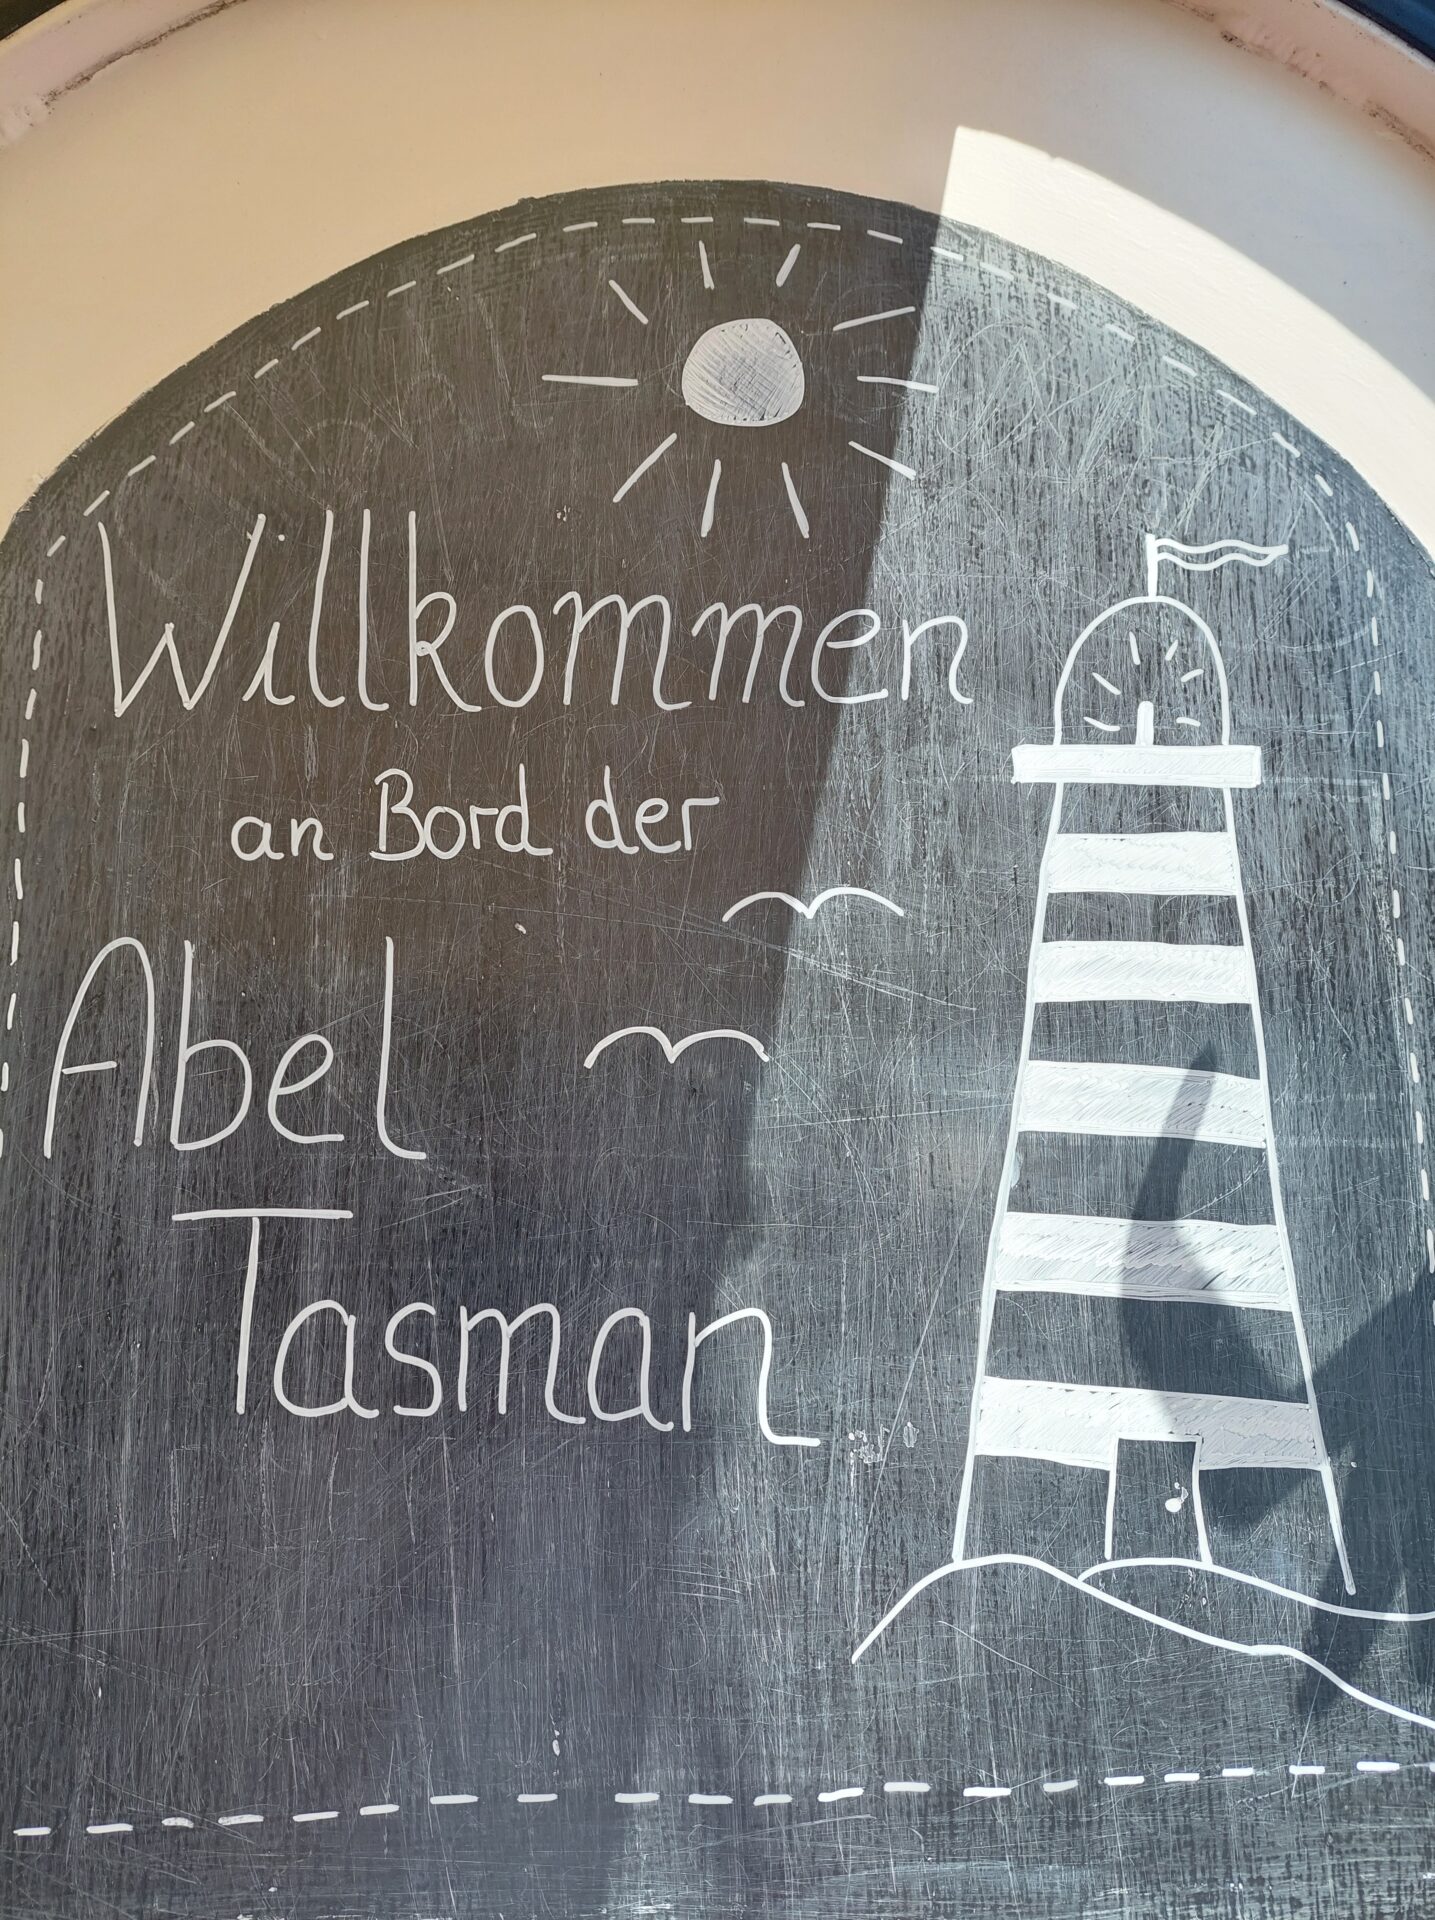 Willkommen
an Bord der
Abel
Tasman